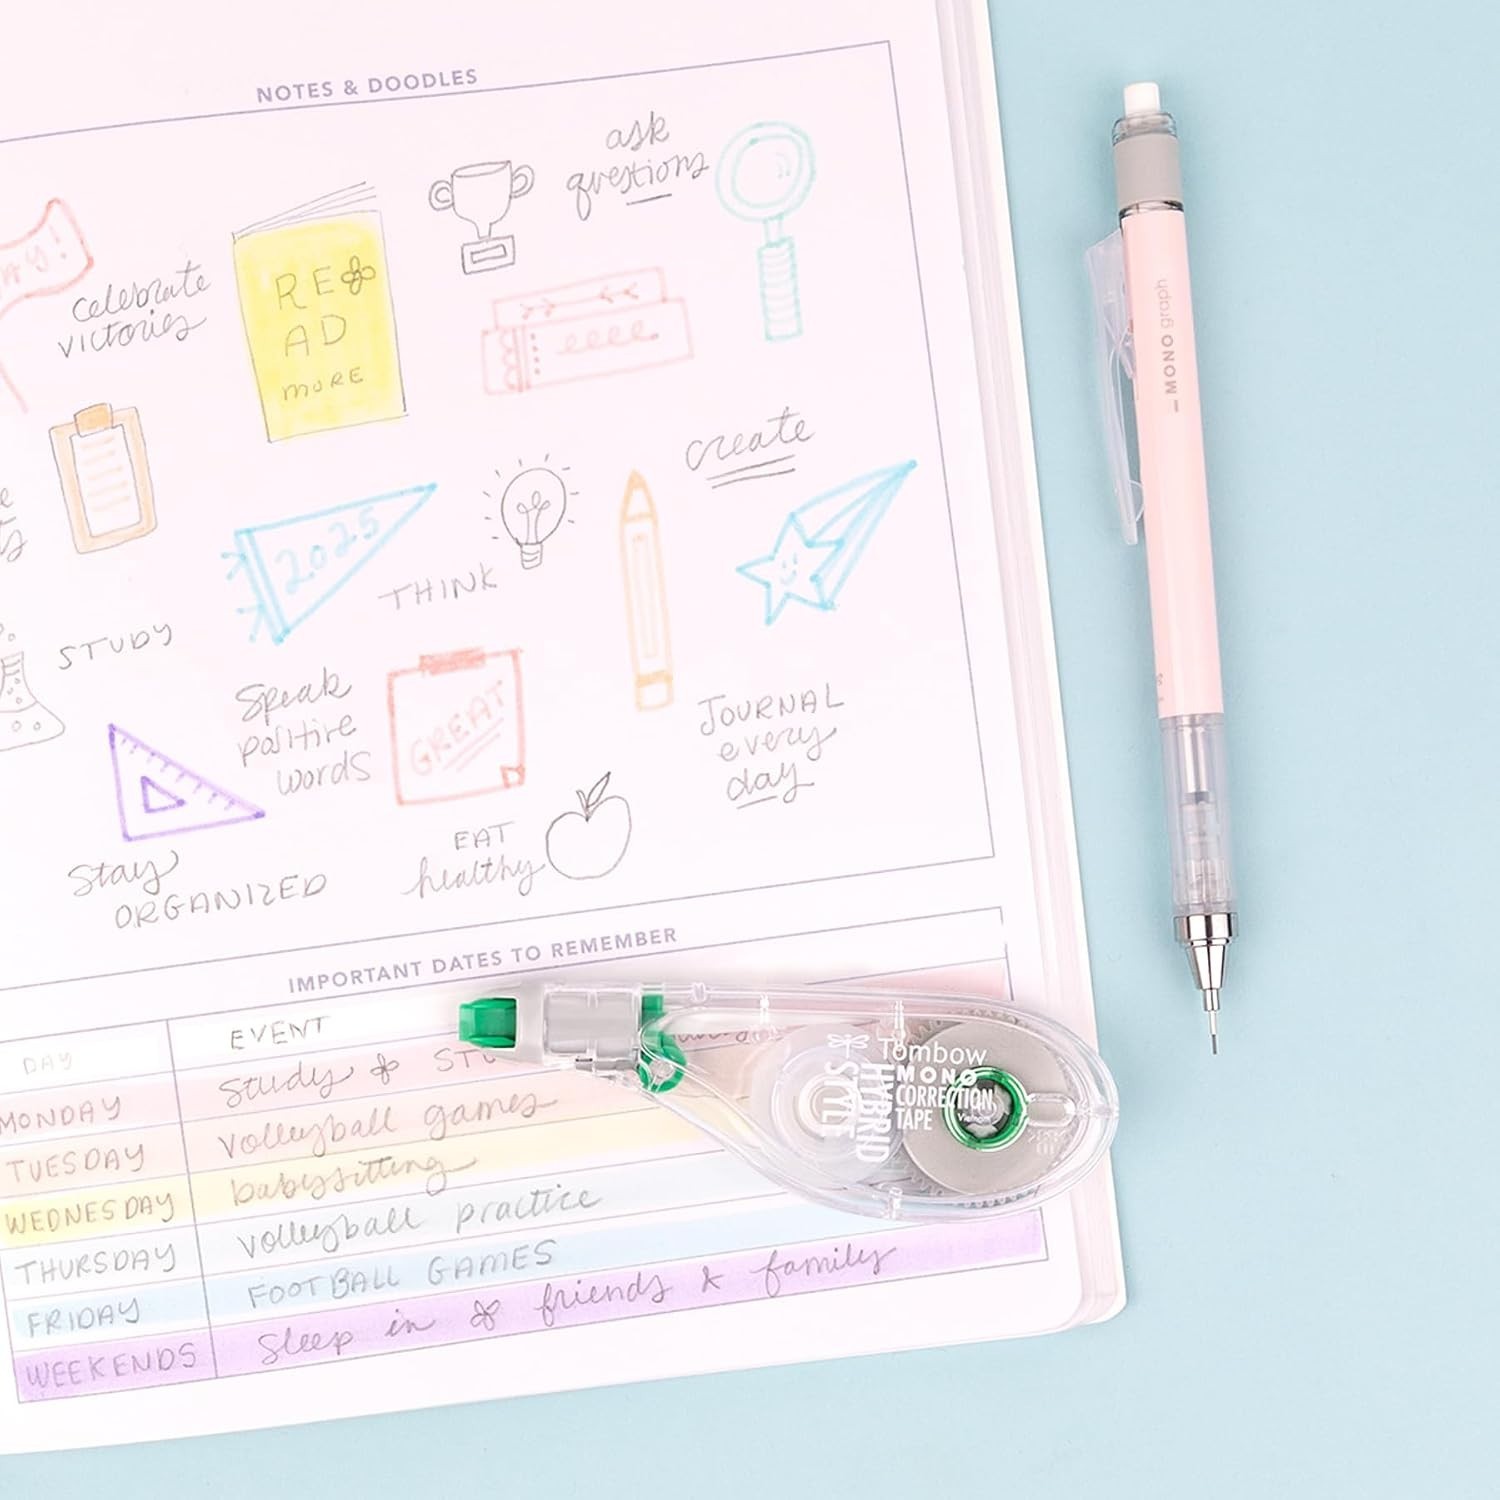 NOTES & DOODLES
ask
questions
AY!
celebrate
victories
RE
AD
MORE
create
2025
THINK
STUDY
Speak
positive
words
GREAT
JOURNAL
every
day
EAT
healthy
Stay
ORGANIZED
IMPORTANT DATES TO REMEMBER
DAY EVENT
MONDAY Study & STU
TUESDAY volleyball games
WEDNESDAY babysitting
THURSDAY volleyball practice
FRIDAY FOOTBALL GAMES
WEEKENDS Sleep in & friends & family
MONO graph
Tombow
MONO
CORRECTION
TAPE
HYBRID
STYLE